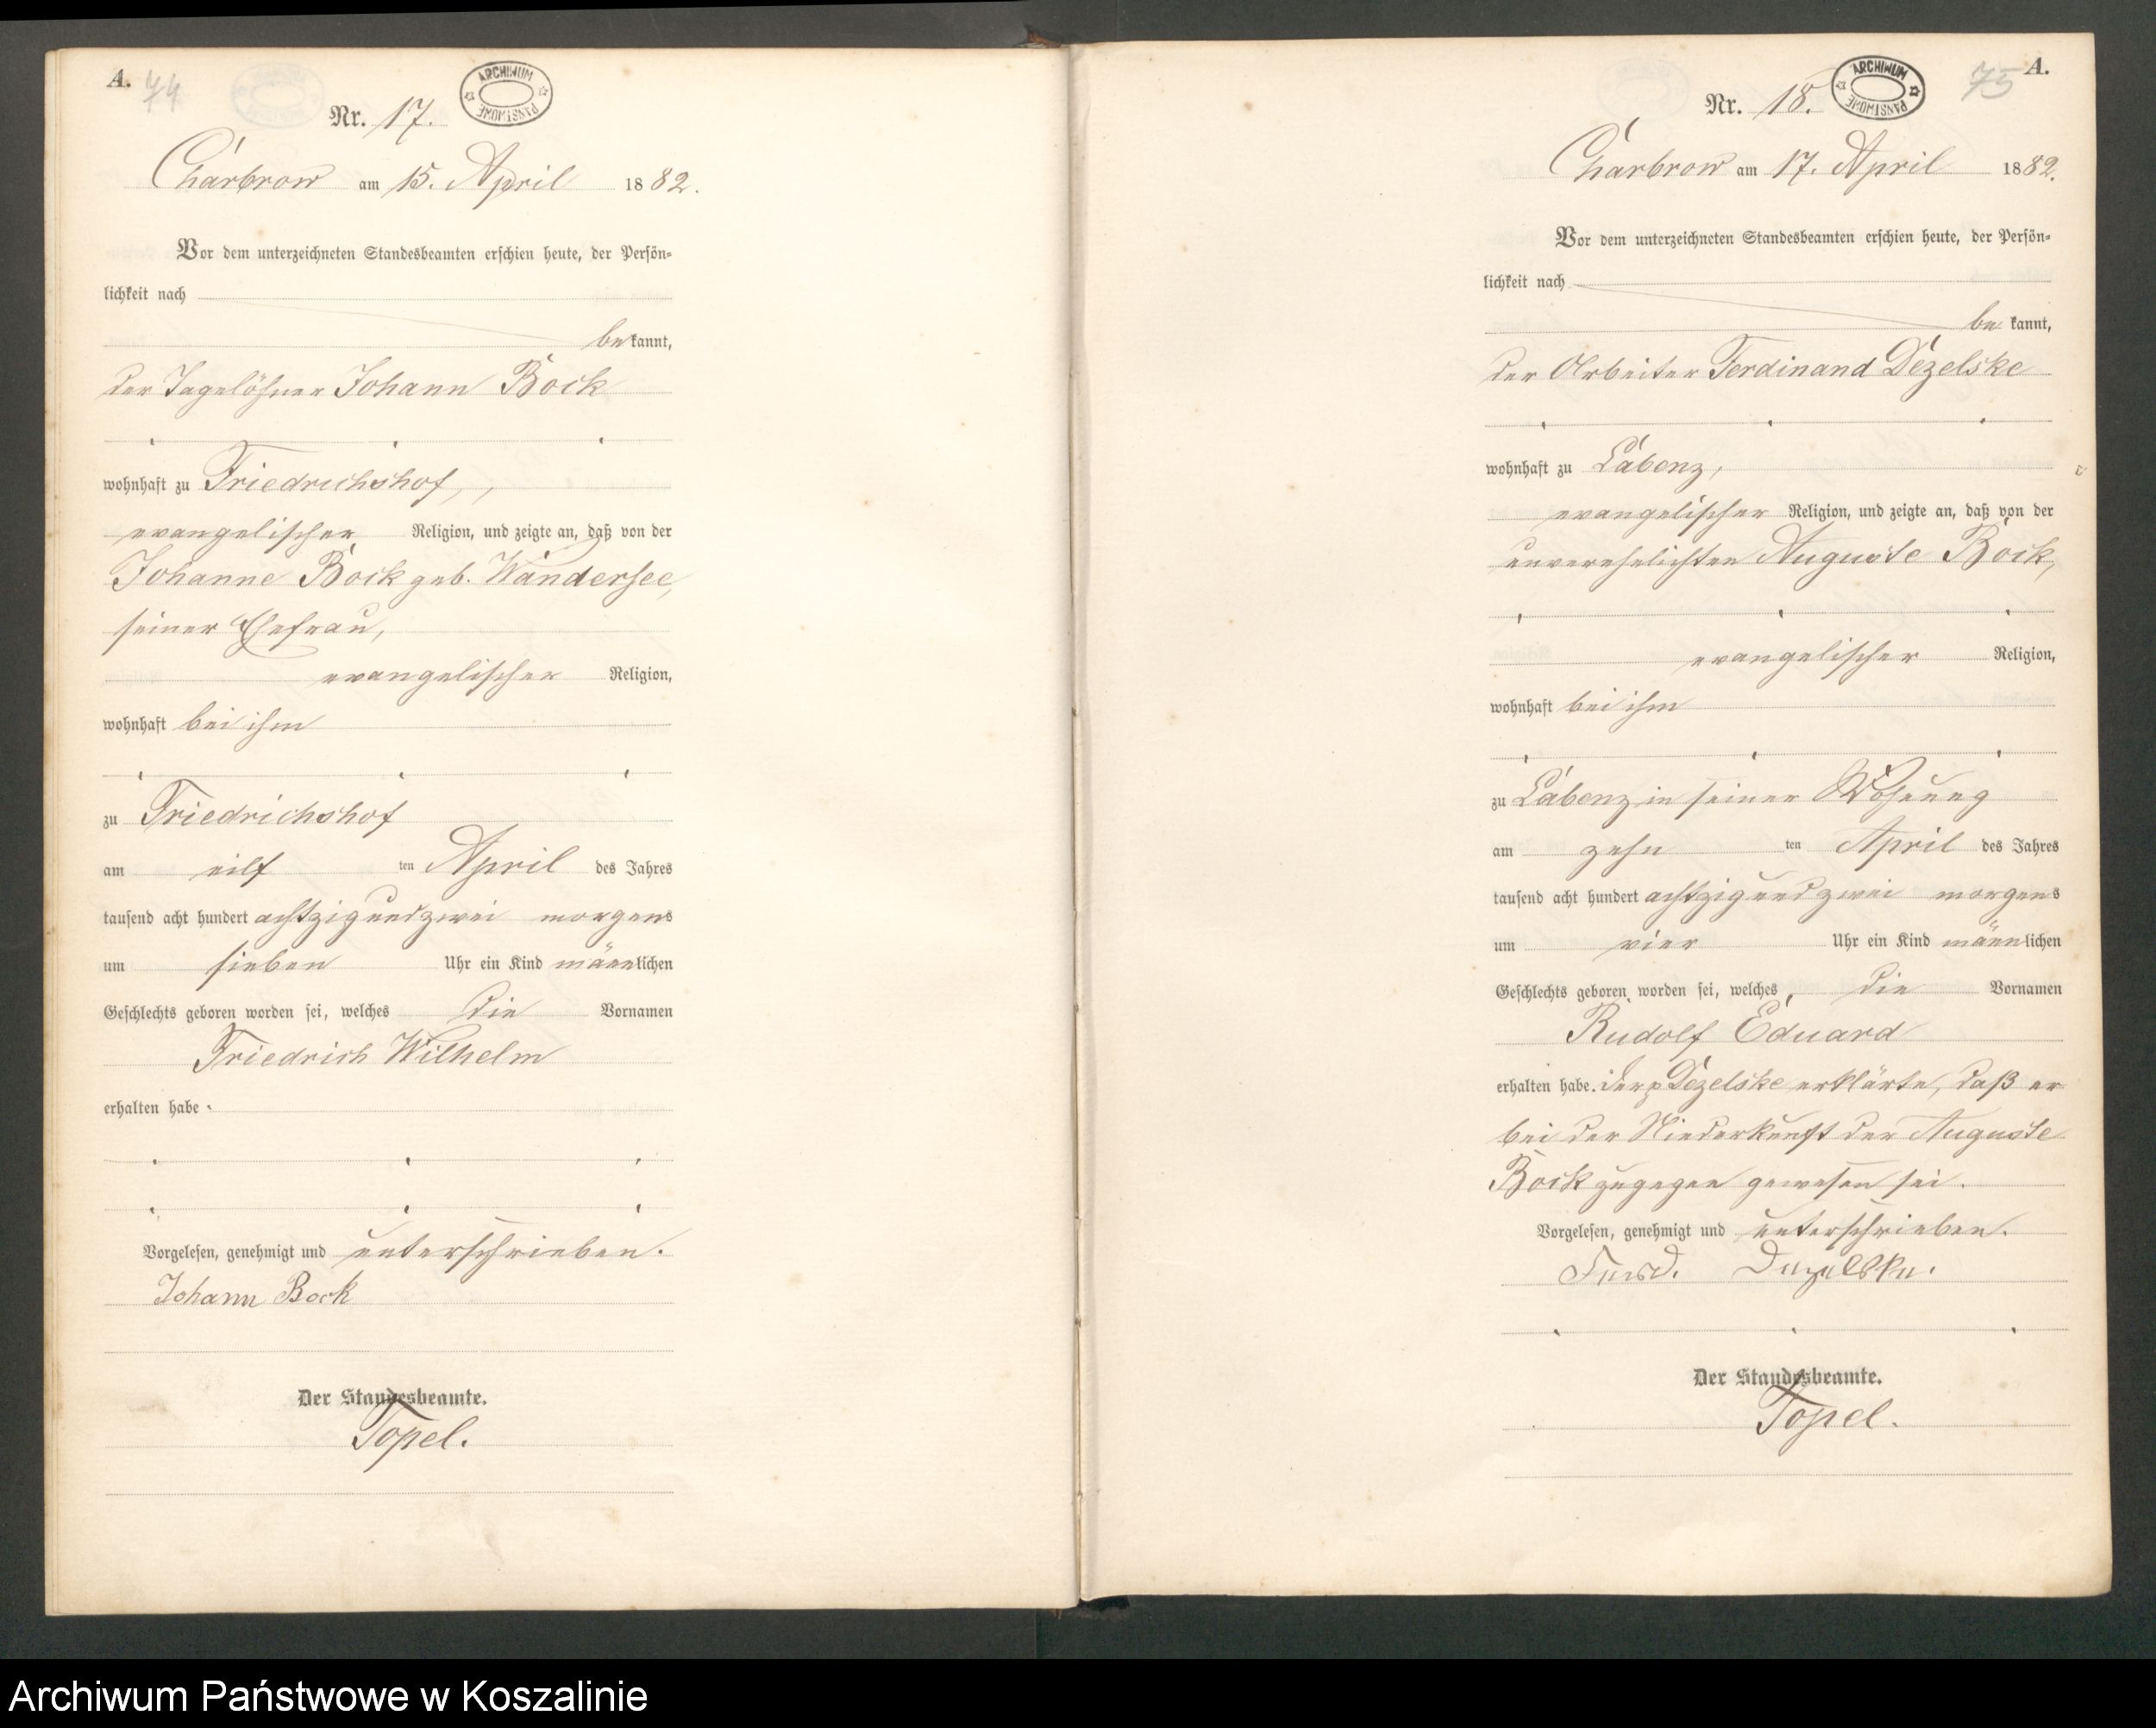 A. 74
ARCHIWUM PAŃSTWOWE
Nr. 17.
Charbrow am 15. April 1882.
Vor dem unterzeichneten Standesbeamten erschien heute, der Persön-
lichkeit nach
bekannt,
der Tagelöhner Johann Bock
wohnhaft zu Friedrichshof,
evangelischer Religion, und zeigte an, daß von der
Johanne Bock geb. Wandersee,
seiner Ehefrau,
evangelischer Religion,
wohnhaft bei ihm
zu Friedrichshof
am eilf ten April des Jahres
tausend acht hundert achtzig und zwei morgens
um sieben Uhr ein Kind männlichen
Geschlechts geboren worden sei, welches die Vornamen
Friedrich Wilhelm
erhalten habe.
Vorgelesen, genehmigt und unterschrieben.
Johann Bock
Der Standesbeamte.
Topel.
75 A.
ARCHIWUM PAŃSTWOWE
Nr. 18.
Charbrow am 17. April 1882.
Vor dem unterzeichneten Standesbeamten erschien heute, der Persön-
lichkeit nach
bekannt,
der Arbeiter Ferdinand Dezelske
wohnhaft zu Labenz,
evangelischer Religion, und zeigte an, daß von der
unverehelichten Auguste Bock,
evangelischer Religion,
wohnhaft bei ihm
zu Labenz in seiner Wohnung
am zehn ten April des Jahres
tausend acht hundert achtzig und zwei morgens
um vier Uhr ein Kind männlichen
Geschlechts geboren worden sei, welches, die Vornamen
Rudolf Eduard
erhalten habe. Der p Dezelske erklärte, daß er
bei der Niederkunft der Auguste
Bock zugegen gewesen sei.
Vorgelesen, genehmigt und unterschrieben.
Ferd. Dezelske.
Der Standesbeamte.
Topel.
Archiwum Państwowe w Koszalinie